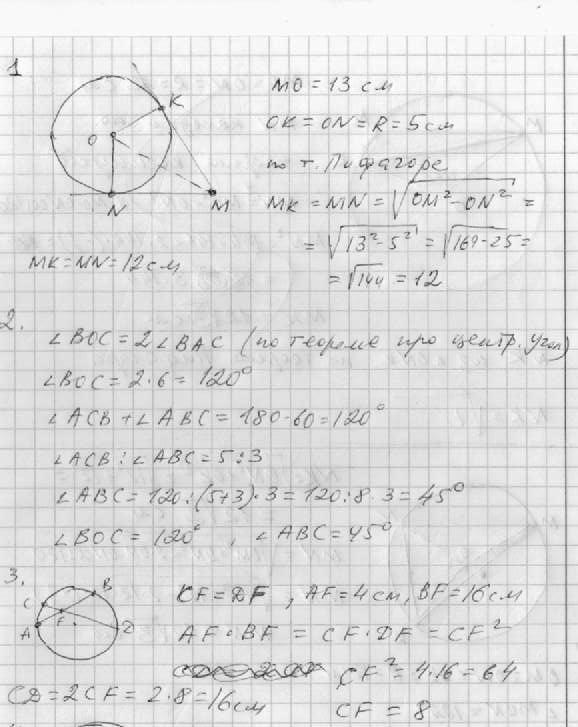 1
K
O
N
M
MO = 13 см
OK = ON = R = 5 см
по т. Пифагоре
MK = MN = √OM² - ON² =
= √13² - 5² = √169 - 25 =
= √144 = 12
MK = MN = 12 см
2.
∠BOC = 2∠BAC (по теореме про центр. угол)
∠BOC = 2·6 = 120°
∠ACB + ∠ABC = 180 - 60 = 120°
∠ACB : ∠ABC = 5 : 3
∠ABC = 120 : (5+3)·3 = 120 : 8·3 = 45°
∠BOC = 120°, ∠ABC = 45°
3.
B
C
F
A
D
CF = DF, AF = 4 см, BF = 16 см
AF·BF = CF·DF = CF²
CF² = 4·16 = 64
CD = 2CF = 2·8 = 16 см
CF = 8